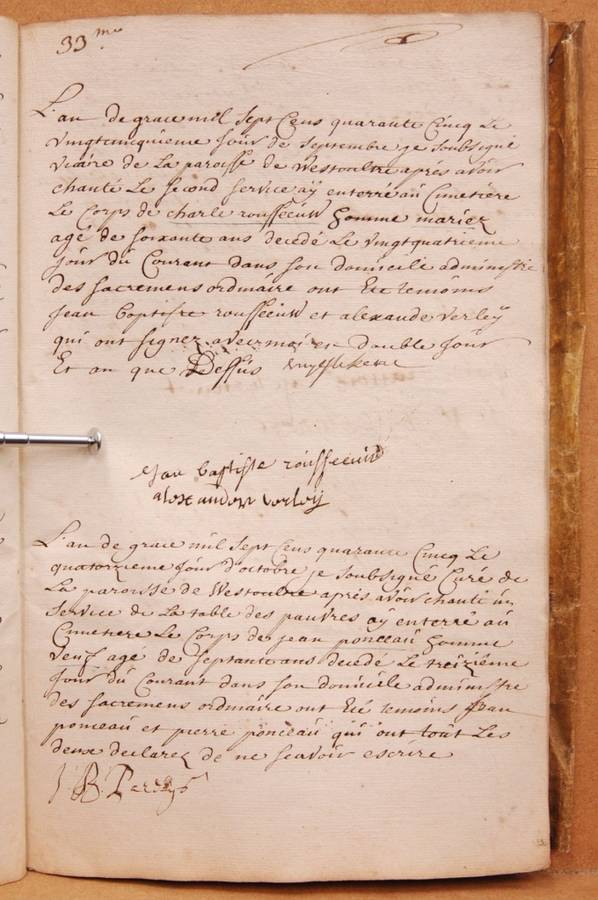 33.me
L'an de grace mil sept Cens quarante Cinq Le
vingtcincquieme Jour de septembre je soubsigné
vicaire de La paroisse de Westoultre aprés avoir
chanté Le second service aÿ enterré au Cimetiere
Le Corps de charle rousseeuw homme mariez
agé de soixante ans decedé Le vingtquatrieme
Jour du Courant dans son domicile administré
des sacremens ordinaire ont Eté temoins
Jean baptiste rousseeuw et alexandre verleÿ
qui ont signez avecz moi en double Jour
Et an que Dessus
Jan baptiste rousseeuw
alexander verleij
L'an de grace mil sept Cens quarante Cincq Le
quatorzieme Jour d'octobre je soubsigné Curé de
La paroisse de Westoultre aprés avoir chanté un
service de La table des pauvres ay enterré au
Cimetiere Le Corps de jean ponceau homme
veuf agé de septante ans decedé Le treizième
Jour du Courant dans son domicile administré
des sacremens ordinaire ont Eté temoins jean
ponceau et pierre ponceau qui ont tout Les
deux declarez de ne scavoir escrire
J B